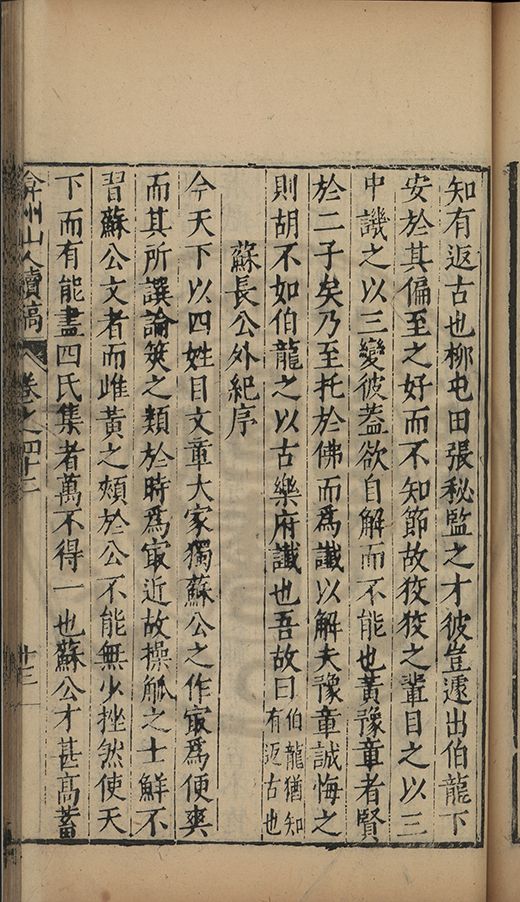 知有返古也柳屯田張秘監之才彼豈遽出伯龍下
安於其偏至之好而不知節故狡狡之輩目之以三
中譏之以三變彼葢欲自解而不能也黃豫章者賢
於二子矣乃至托於佛而爲讖以解夫豫章誠悔之
則胡不如伯龍之以古樂府讖也吾故曰伯龍猶知
有返古也
蘇長公外紀序
今天下以四姓目文章大家獨蘇公之作㝡爲便爽
而其所譔論筴之類於時爲㝡近故操觚之士鮮不
習蘇公文者而雌黃之頰於公不能無少挫然使天
下而有能盡四氏集者萬不得一也蘇公才甚高蓄
弇州山人續稿 卷之四十二 廿三